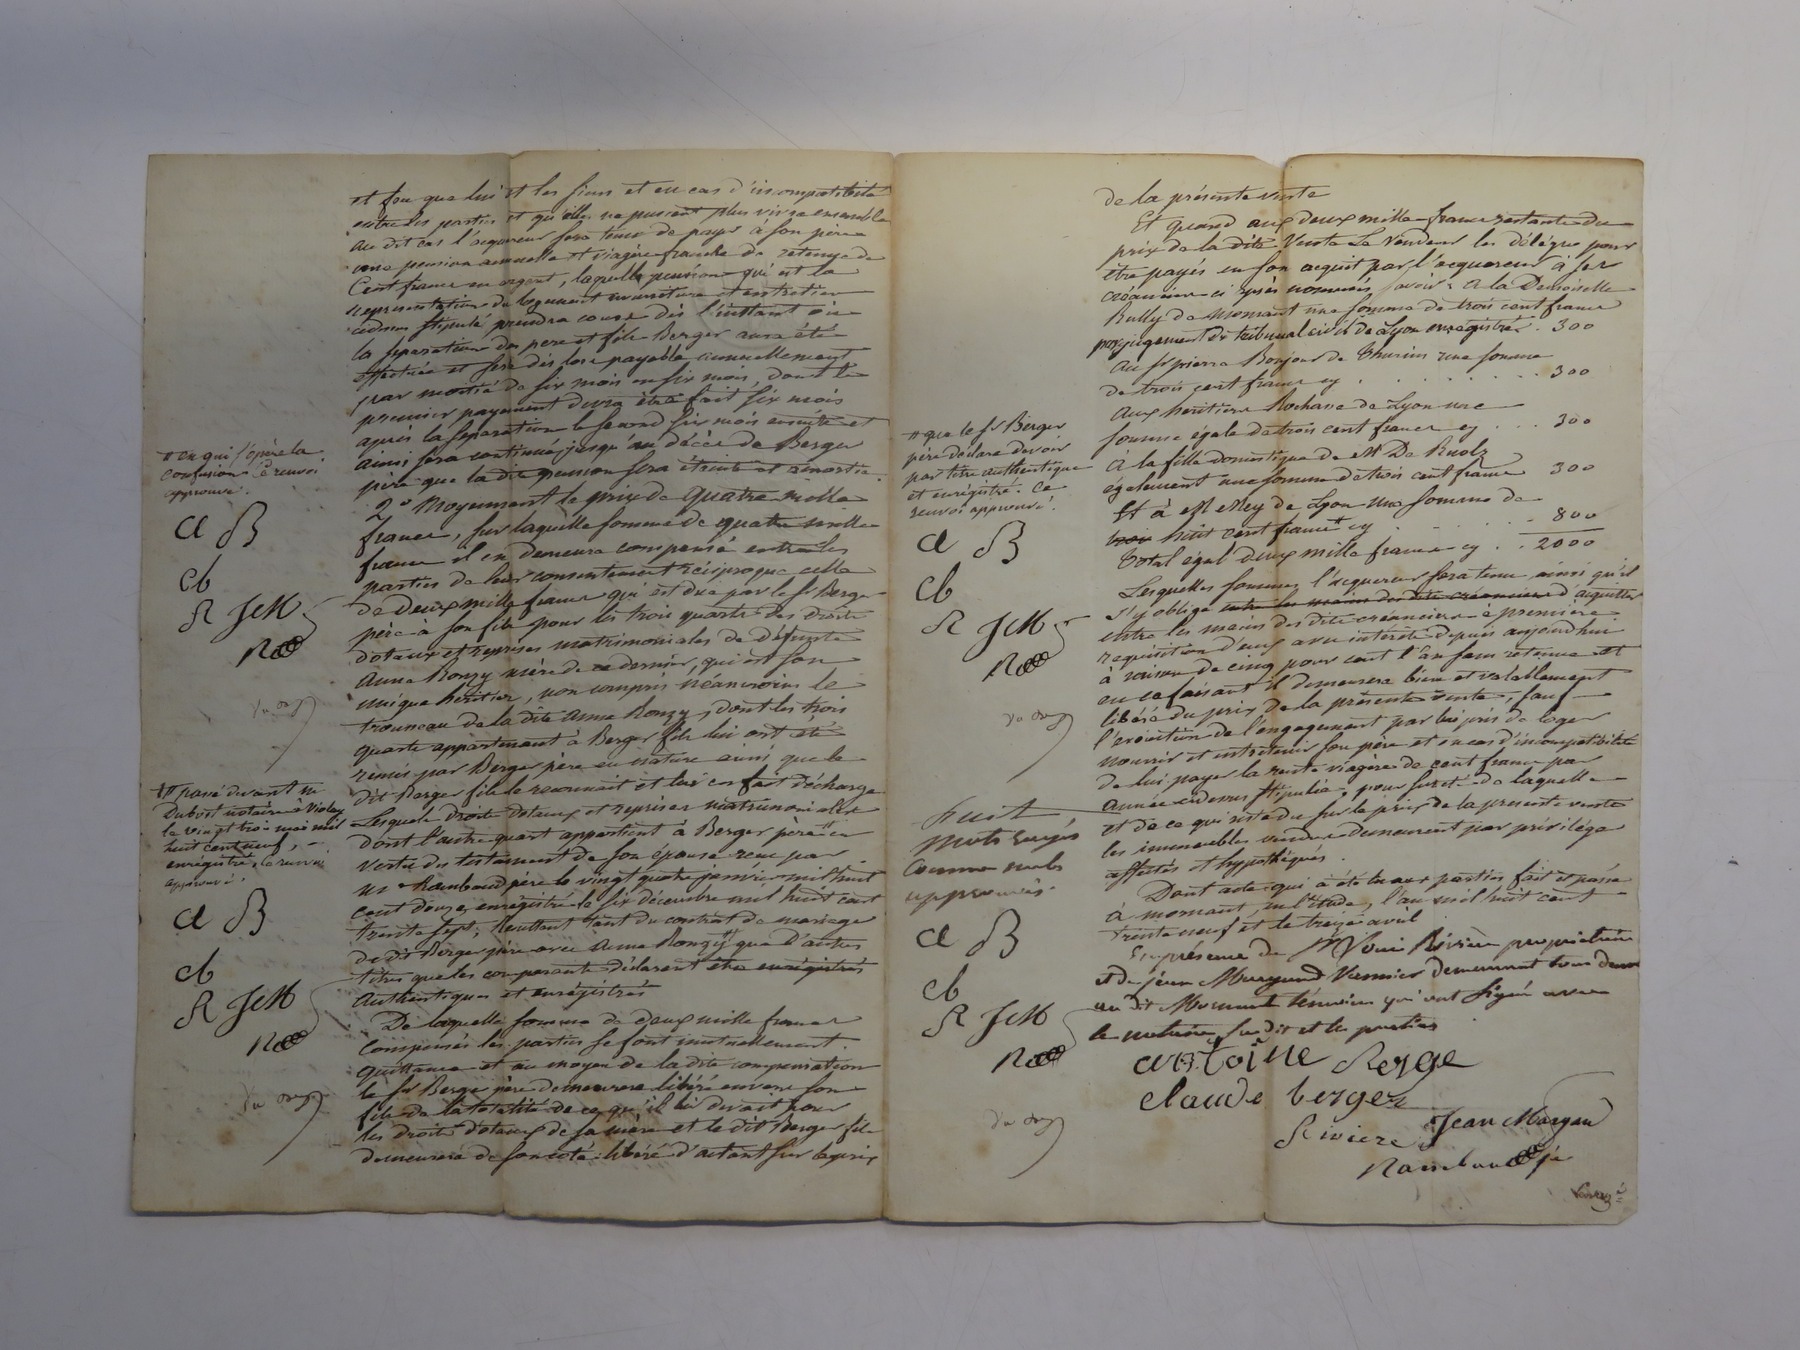 et feu que lui et les siens et en cas d'incompatibilité
entre les parties et qu'elles ne pussent plus vivre ensemble
au dit cas l'acquereur sera tenu de payer à son père
une pension annuelle et viagère franche de retenue de
Cent francs en argent, laquelle pension qui est la
représentation du logement nourriture et entretien
cidessus stipulé prendra cours dès l'instant où
la séparation des pere et fils Berger aura été
effectuée et sera dès lors payable annuellement
par moitié de six mois en six mois, dont le
premier payement devra être fait six mois
après la séparation le second six mois ensuite et
ainsi sera continué jusqu'au décès de Berger
père que la dite pension sera éteinte et amortie.
2° Moyennant le prix de quatre mille
francs, sur laquelle somme de quatre mille
francs il en demeure compensé entre les
parties de leur consentement réciproque celle
de deux mille francs qui est due par le sr Berger
père à son fils pour les trois quarts des droits
dotaux et reprises matrimoniales de defunte
Anne Ronzy mère de ce dernier, qui est son
unique héritier, non compris néanmoins le
trousseau de la dite Anne Ronzy, dont les trois
quarts appartenant à Berger fils lui ont été
remis par Berger père en nature ainsi que le
dit Berger fils le reconnait et lui en fait décharge
Lesquels droits dotaux et reprises matrimoniales
dont l'autre quart appartient à Berger père # en
vertu du testament de son épouse reçu par
Me Raimbaud père le vingt quatre janvier mil huit
cent douze, enregistré le six décembre mil huit cent
trente sept, resultant tant du contrat de mariage
de dit Berger père avec Anne Ronzy # que d'autres
titres que les comparants déclarent être enregistrés
authentiques et enregistrés
De laquelle somme de deux mille francs
compensés les parties se font mutuellement
quittance et au moyen de la dite compensation
le sr Berger père demeurera libéré envers son
fils de la totalité de ce qu'il lui devait pour
les droits dotaux de sa mère et le dit Berger fils
demeurera de son coté libéré d'autant sur le prix
# en qui s'opère la
confusion. Ce renvoi
approuvé.
a B
cb
R JCM
## passé devant me
Dubost notaire à Violay
le vingt trois mai mil
huit cent neuf, -
enregistré, ce renvoi
approuvé.
a B
cb
R JCM
de la présente vente
Et quand aux deux mille francs restants du
prix de la dite Vente Le vendeur les délègue pour
être payés en son acquit par l'acquereur à ses
créanciers ci après nommés, savoir: à la Demoiselle
Rully de Mornant une somme de trois cent francs
par jugement du tribunal civil de Lyon enregistré. 300
au sr pierre Bonjour de Thurins une somme
de trois cent francs cy . . . . . . . . 300
aux héritiers Rochave de Lyon une
somme égale de trois cent francs cy . . . 300
à la fille domestique de Mr De Ruolz
également une somme de trois cent francs 300
Et à Mr Rey de Lyon une somme de
huit cent francs # cy . . . . . . 800
Total égal deux mille francs cy . . 2000
Lesquelles sommes l'acquereur sera tenu, ainsi qu'il
s'y oblige entre les mains des dits créanciers d'acquitter
entre les mains des dits créanciers à première
requisition d'eux avec intérêts depuis aujourd'hui
à raison de cinq pour cent l'an sans retenue et
en ce faisant il demeurera bien et valablement
libéré du prix de la présente vente, sauf
l'exécution de l'engagement par lui pris de loger
nourrir et entretenir son père et en cas d'incompatibilité
de lui payer la rente viagère de cent francs par
année cidessus stipulée, pour sureté de laquelle
et de ce qui reste du sur le prix de la présente vente
les immeubles vendus demeurent par privilège
affectés et hypothéqués.
Dont acte qui a été lu aux parties fait et passé
à mornant, en l'étude, l'an mil huit cent
trente neuf et le treize avril
En présence de Mr Louis Rivière propriétaire
et de Jean Margand Vannier demeurant tous deux
au dit Mornant témoins qui ont signé avec
le notaire susdit et les parties
# que le sr Berger
père déclare devoir
par titre authentique
et enregistré. Ce
renvoi approuvé.
a B
cb
R JCM
huit
mots rayés
comme nuls
approuvés.
a B
cb
R JCM
antoine Berge
claude berger
Riviere Jean Margan